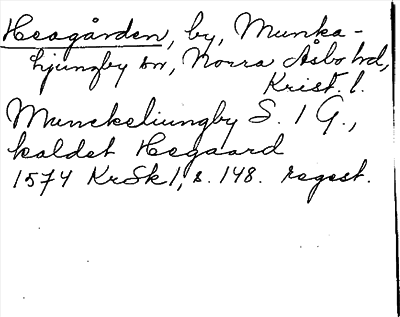 Heagården, by, Munka-
ljungby sn, Norra Åsbo hd,
Krist. l.
Munckeliungby S. 1 G.,
kaldet Hegaard
1574 KrSk 1, s. 148. regest.